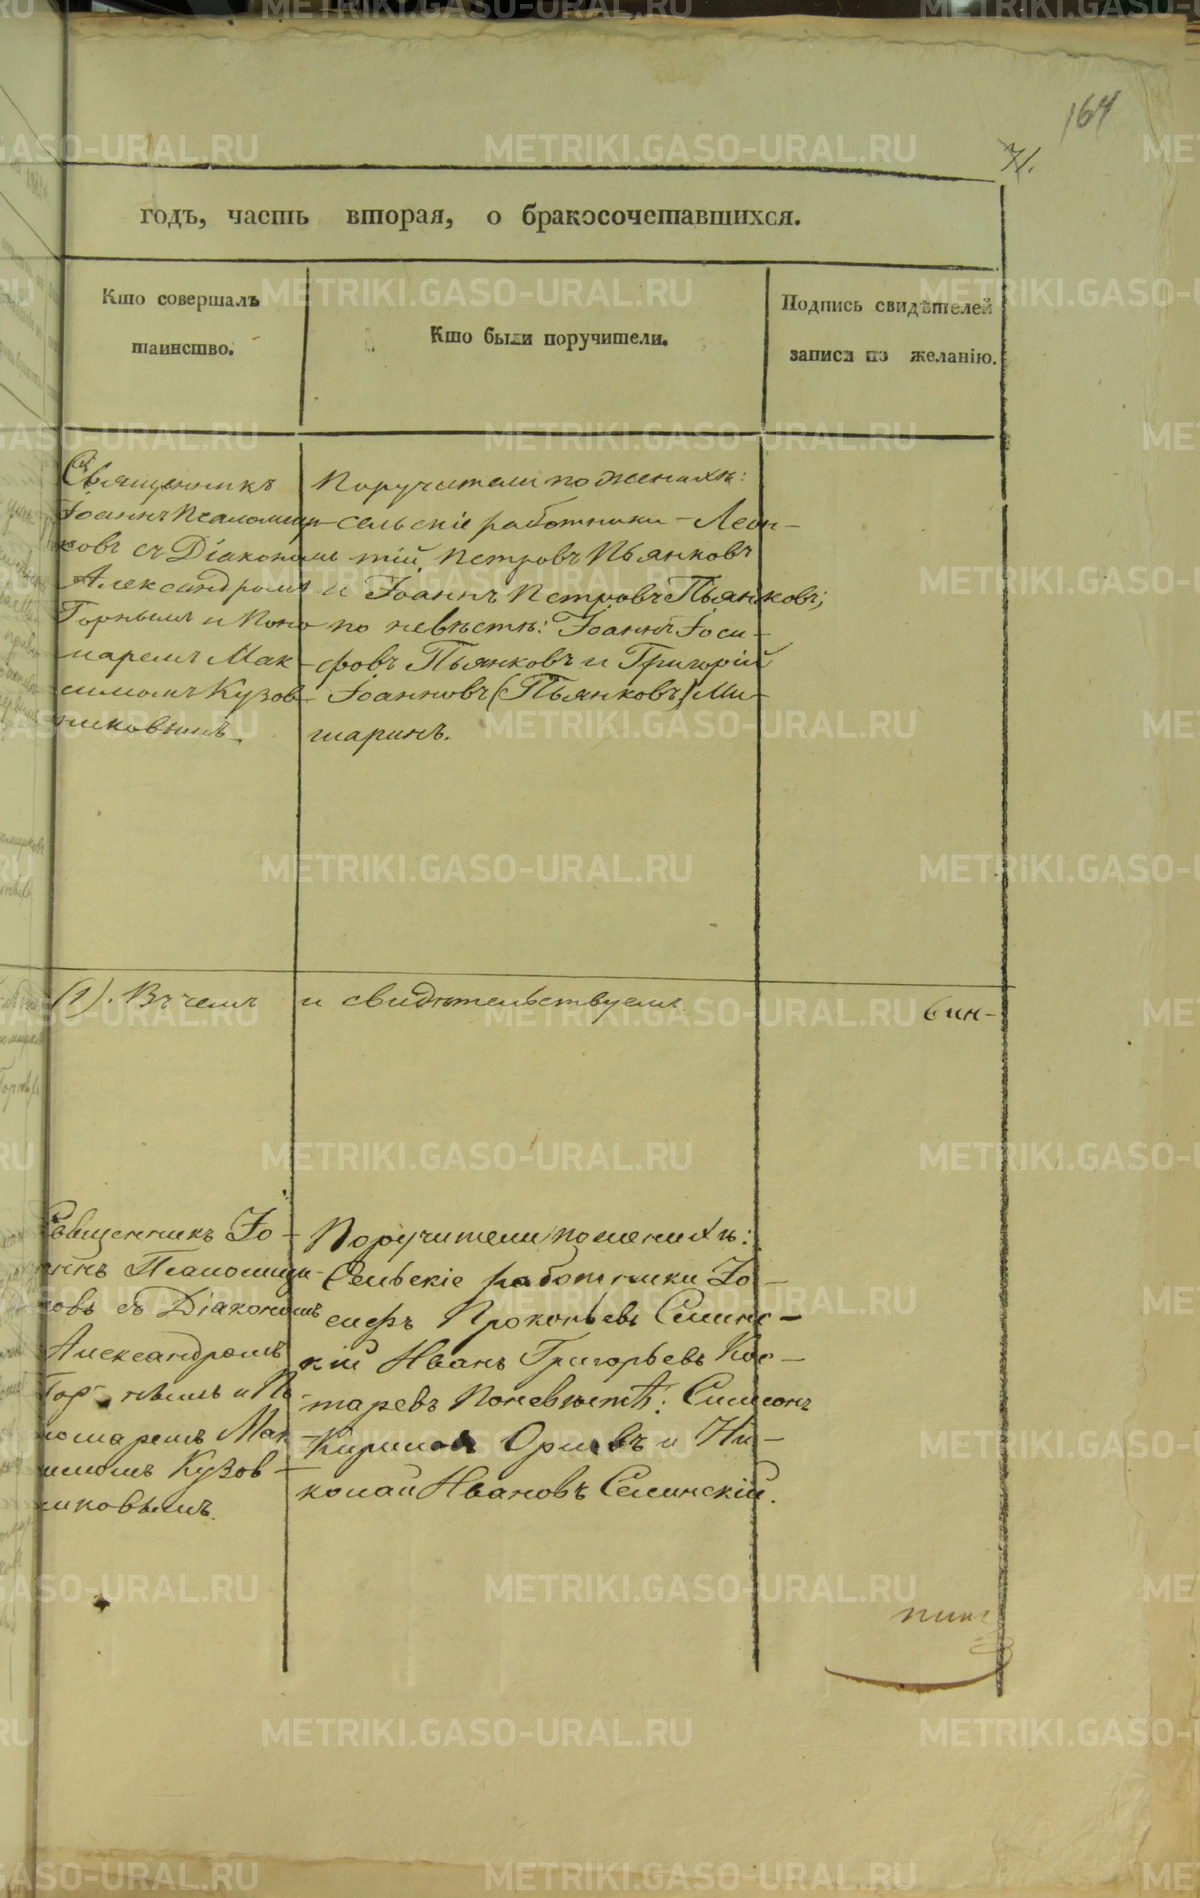 164
71.
годъ, часть вторая, о бракосочетавшихся.
Кто совершалъ
таинство.
Кто были поручители.
Подпись свидѣтелей
записи по желанію.
Священникъ
Іоаннъ Псаломщи-
ковъ съ Діакономъ
Александромъ
Горнымъ и Поно-
маремъ Мак-
симомъ Кузов-
никовымъ.
Поручители по женихѣ:
сельскіе работники – Леон-
тій Петровъ Пьянковъ
и Іоаннъ Петровъ Пьянковъ;
по невѣстѣ: Іоаннъ Іоси-
фовъ Пьянковъ и Григорій
Іоанновъ (Пьянковъ) Ми-
шаринъ.
(1). Въ чемъ и свидѣтельствуемъ.
Священникъ Іо-
аннъ Псаломщи-
ковъ съ Діакономъ
Александромъ
Горнымъ и По-
номаремъ Мак-
симомъ Кузов-
никовымъ.
Поручители по женихѣ:
Сельскіе работники Іо-
сифъ Прокопьевъ Семинс-
кій Иванъ Григорьевъ Кос-
таревъ по невѣстѣ: Симеонъ
Кирилов Орловъ и Ни-
колай Ивановъ Семинскій.
METRIKI.GASO-URAL.RU